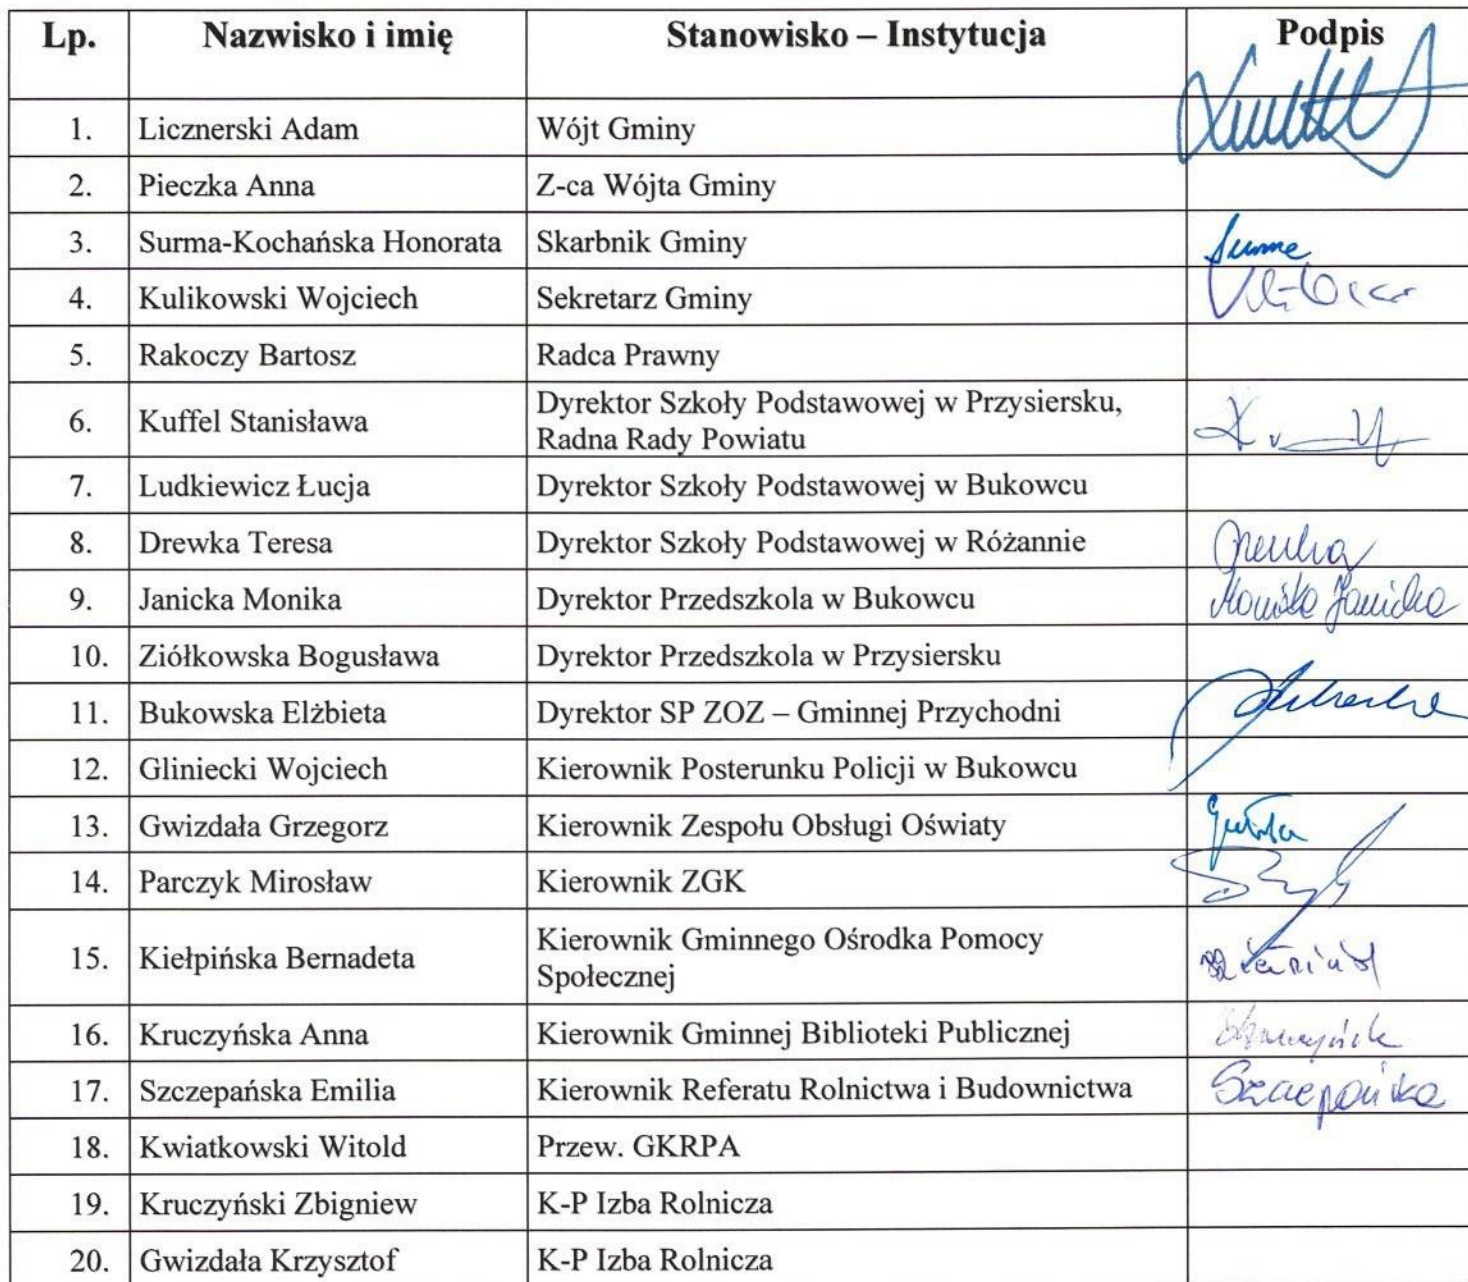 Lp. Nazwisko i imię Stanowisko – Instytucja Podpis
1. Licznerski Adam Wójt Gminy
2. Pieczka Anna Z-ca Wójta Gminy
3. Surma-Kochańska Honorata Skarbnik Gminy
4. Kulikowski Wojciech Sekretarz Gminy
5. Rakoczy Bartosz Radca Prawny
6. Kuffel Stanisława Dyrektor Szkoły Podstawowej w Przysiersku,
Radna Rady Powiatu
7. Ludkiewicz Łucja Dyrektor Szkoły Podstawowej w Bukowcu
8. Drewka Teresa Dyrektor Szkoły Podstawowej w Różannie
9. Janicka Monika Dyrektor Przedszkola w Bukowcu Monika Janicka
10. Ziółkowska Bogusława Dyrektor Przedszkola w Przysiersku
11. Bukowska Elżbieta Dyrektor SP ZOZ – Gminnej Przychodni
12. Gliniecki Wojciech Kierownik Posterunku Policji w Bukowcu
13. Gwizdała Grzegorz Kierownik Zespołu Obsługi Oświaty
14. Parczyk Mirosław Kierownik ZGK
15. Kiełpińska Bernadeta Kierownik Gminnego Ośrodka Pomocy
Społecznej
16. Kruczyńska Anna Kierownik Gminnej Biblioteki Publicznej
17. Szczepańska Emilia Kierownik Referatu Rolnictwa i Budownictwa Szczepańska
18. Kwiatkowski Witold Przew. GKRPA
19. Kruczyński Zbigniew K-P Izba Rolnicza
20. Gwizdała Krzysztof K-P Izba Rolnicza